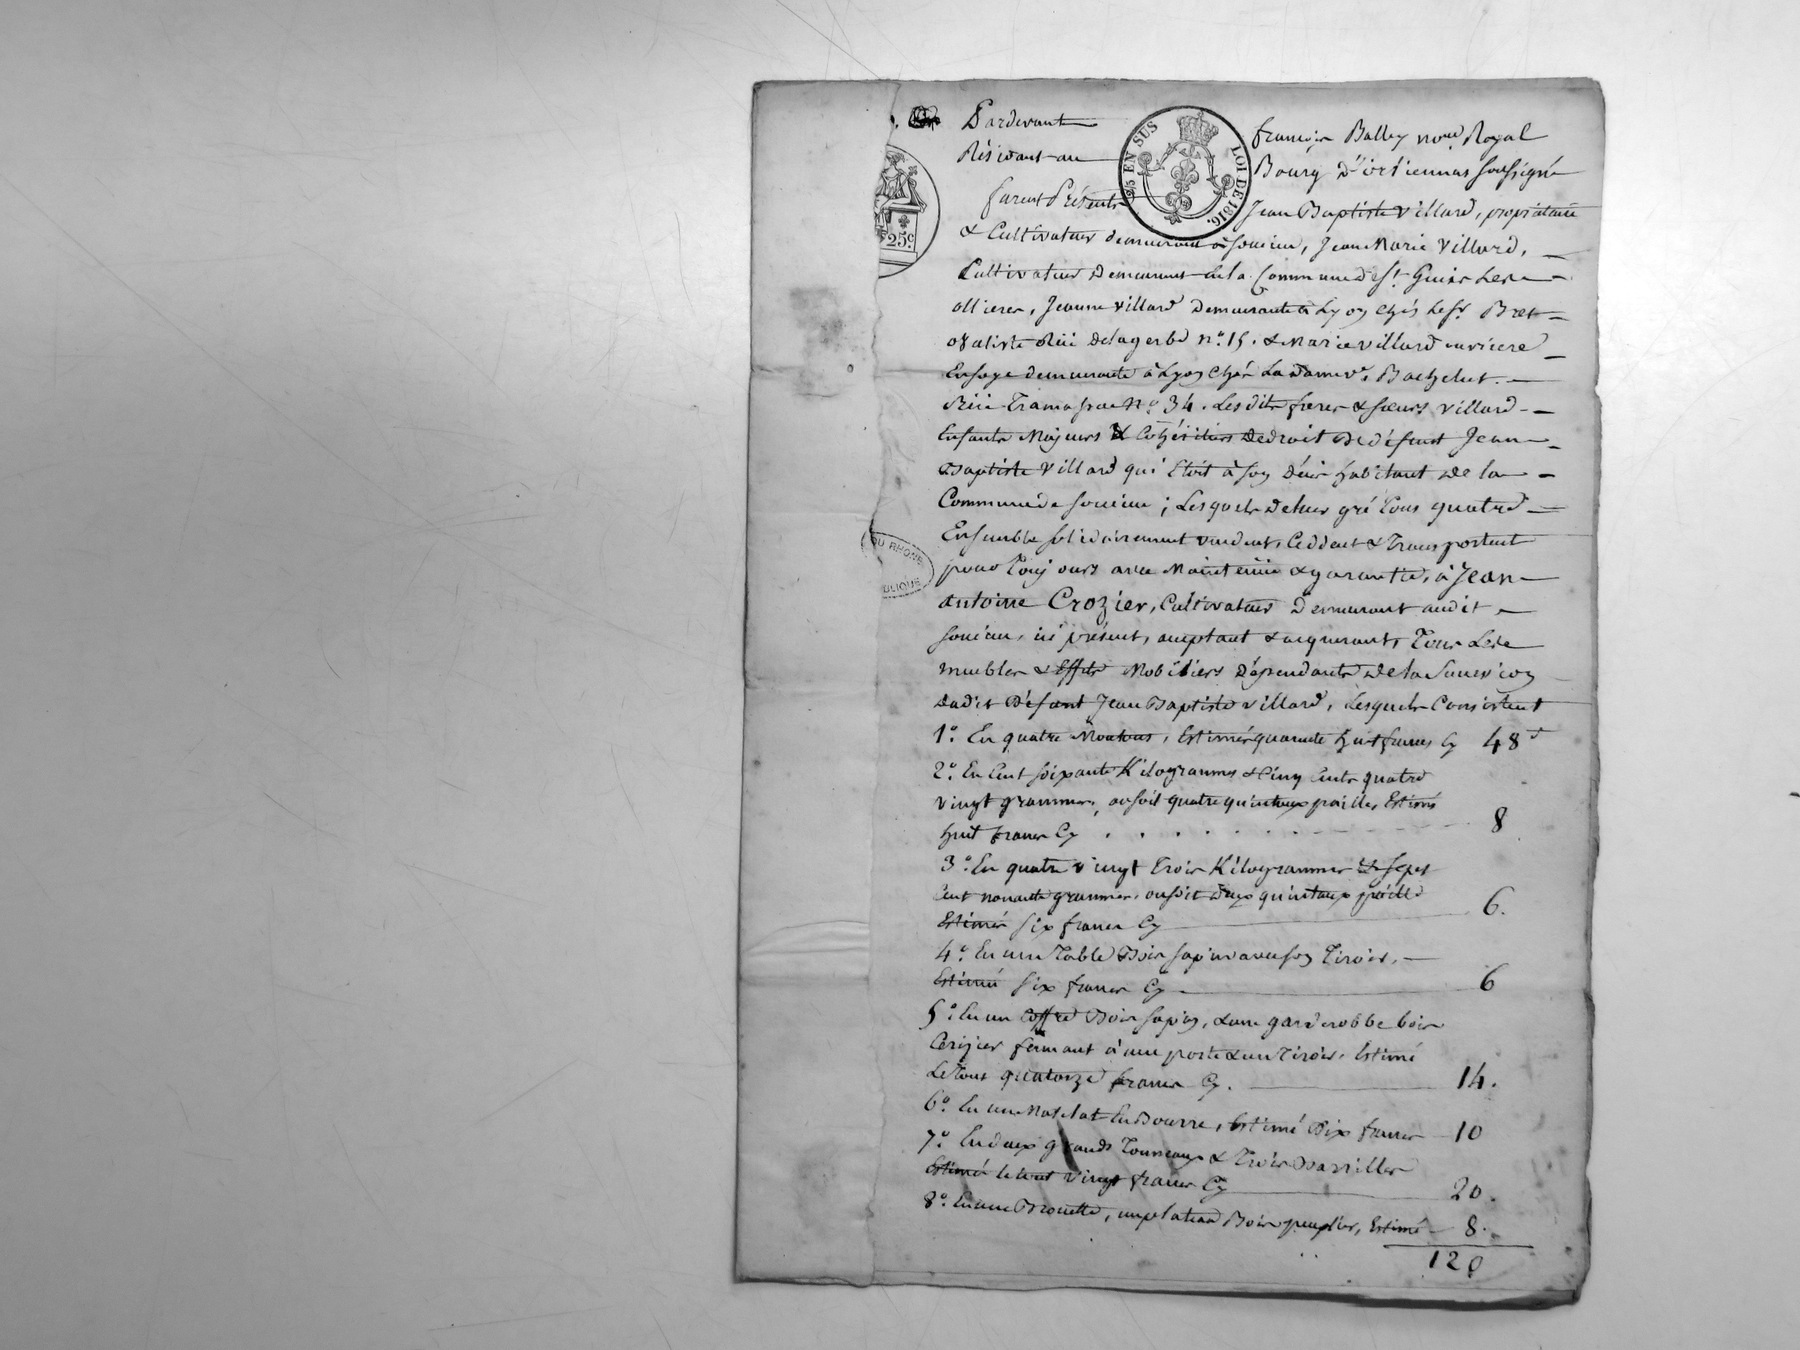 Pardevant françois Balley no.re Royal
Résidant au Bourg d'ortiennas soussigné
25 EN SUS LOI DE 1816.
25c
furent Présents Jean Baptiste Villard, propriétaire
& Cultivateur demeurant à soucieu, Jean Marie Villard,
Cultivateur Demeurant en la Commune de st Genis Les
ollieres, Jeanne Villard Demeurante à Lyon chés Le sr. Bret
ovaliste Rüe de la gerbe n.o 15. & Marie Villard ouvriere
En soye demeurante à Lyon chés La Dame ve. Bachelut.
Rüe Tramassac N.o 34. Lesdits freres & sœurs Villard
Enfants Majeurs & Cohéritiers De droit De défunt Jean
Baptiste Villard qui Etoit à son Décès habitant De la
Commune de soucieu ; Lesquels De leur gré Tous quatre
Ensemble solidairement vendent, Cèddent & Transportent
DU RHONE
BLIQUE
pour Toujours avec Maintenüe & garantie, à Jean
antoine Crozier, Cultivateur Demeurant audit
soucieu, ici présent, acceptant & acquerant, Tous Les
meubles & Effets Mobiliers Dépendants De la Succession
dudit Défunt Jean Baptiste Villard, Lesquels Consistent
1.o En quatre Moutons, Estimés quarante huit francs Cy 48 f
2.o En Cent soixante Kilogrammes & Cinq Cents quatre
vingt grammes, ou soit quatre quintaux paille, Estimé
huit francs Cy 8
3.o En quatre vingt Trois Kilogrammes & sept
Cent nonante grammes, ou soit deux quintaux
Estimés six francs Cy 6.
4.o En une Table Bois sapin avec son Tiroir,
Estimée six francs Cy 6
5.o En un Coffre Bois sapin, & une garderobbe bois
Cerizier fermant à une porte & un Tiroir, Estimé
Le Tout quatorze francs Cy. 14.
6.o En un Matelat En Bourre, Estimé Dix francs 10
7.o En deux grands Tonneaux & Trois Barrilles
Estimés le tout vingt francs Cy 20.
8.o En une Brouette, un plateau Bois peuplier, Estimé 8.
120